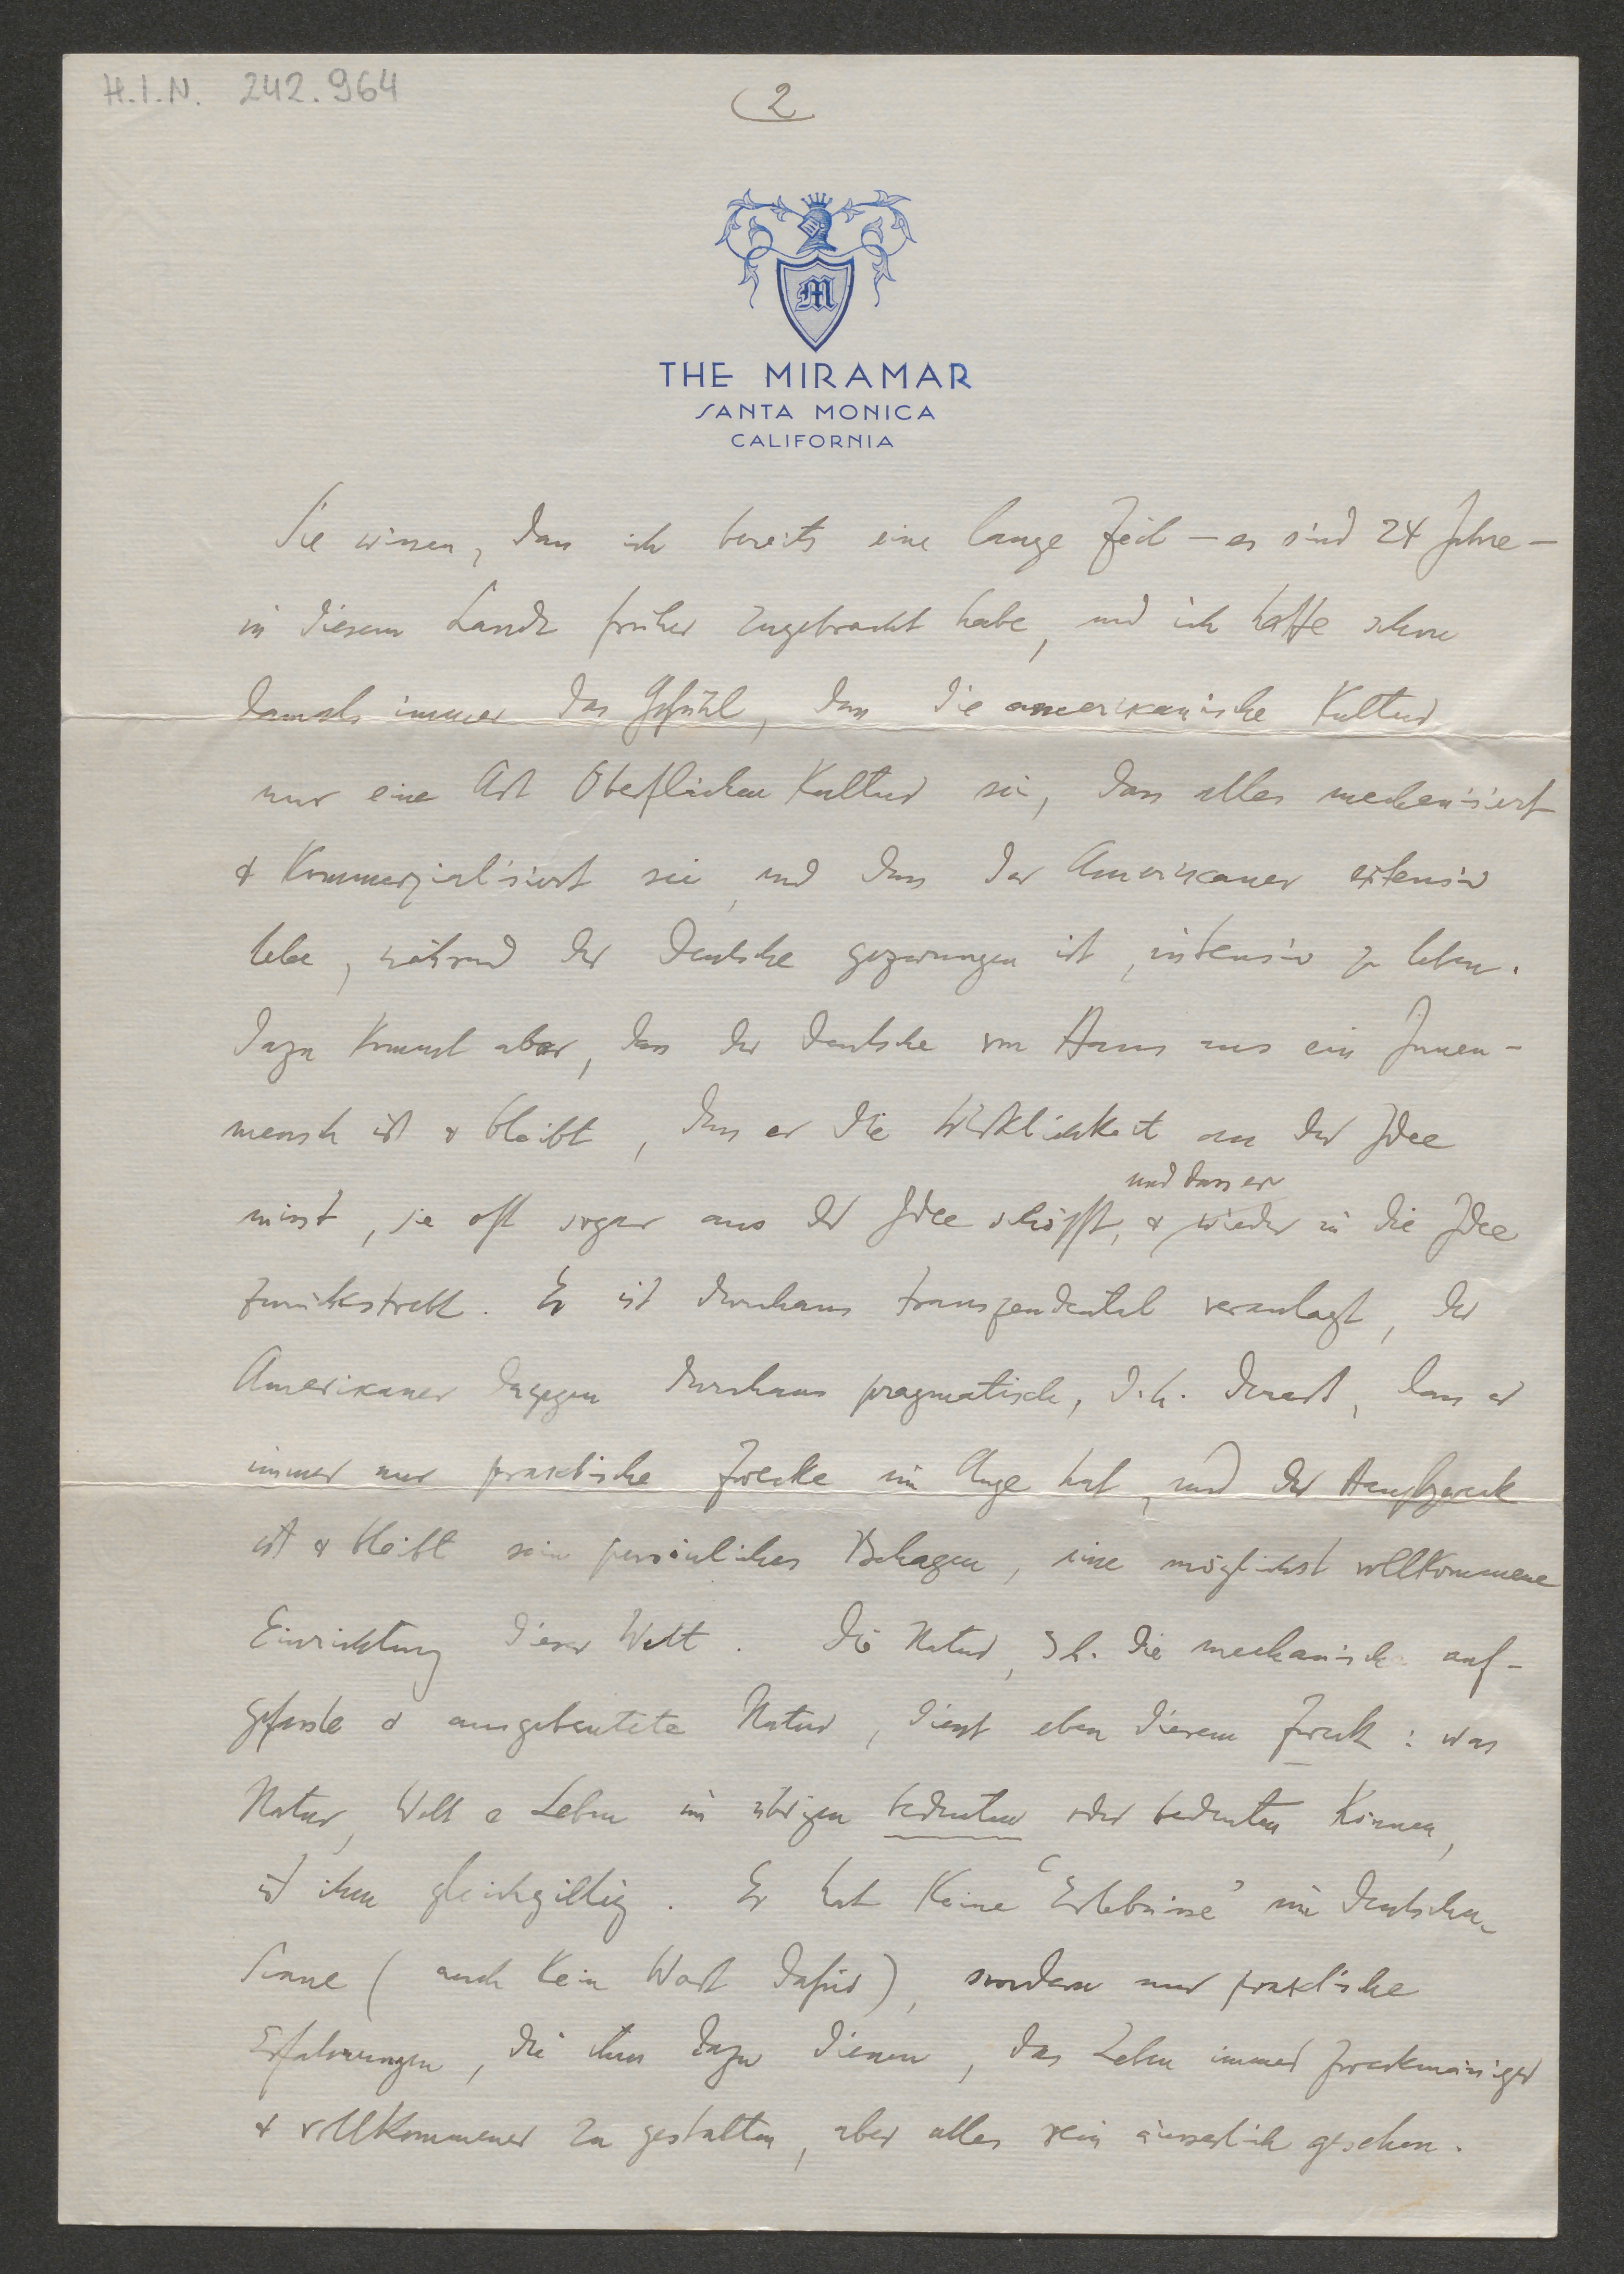 H.I.N. 242.964
2
M
THE MIRAMAR
SANTA MONICA
CALIFORNIA
Sie wissen, dass ich bereits eine lange Zeit – es sind 24 Jahre –
in diesem Lande früher zugebracht habe, und ich hatte schon
damals immer das Gefühl, dass die amerikanische Kultur
nur eine Art Oberflächen Kultur sei, dass alles mechanisiert
& Kommerzialisiert sei, und dass der Amerikaner extensiv
lebe, während der Deutsche gezwungen ist, intensiv zu leben.
Dazu kommt aber, dass der Deutsche von Haus aus ein Innen-
mensch ist & bleibt, dass er die Wirklichkeit an der Idee
und dass er
misst, sie oft sogar aus der Idee schöpft, & wieder in die Idee
zurückstrebt. Er ist durchaus transzendental veranlagt, der
Amerikaner dagegen durchaus pragmatisch, d.h. derart, dass er
immer nur praktische Zwecke im Auge hat, und der Hauptzweck
ist & bleibt sein persönliches Behagen, eine möglichst vollkommene
Einrichtung dieser Welt. Die Natur, d.h. die mechanisch auf-
gefasste & ausgebeutete Natur, dient eben diesem Zweck: was
Natur, Welt & Leben im übrigen bedeuten oder bedeuten können,
ist ihm gleichgiltig. Er hat keine 'Erlebnisse' im deutschen
Sinne (auch kein Wort dafür), sondern nur praktische
Erfahrungen, die ihm dazu dienen, das Leben immer zweckmässiger
& vollkommener zu gestalten, aber alles rein äusserlich gesehen.